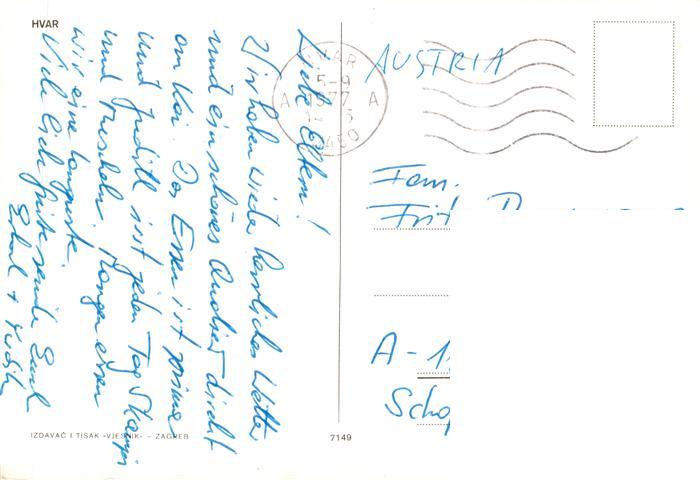 HVAR
Liebe Eltern!
Wir haben wieder herrliches Wetter
und ein schönes Quartier direkt
am Kai. Das Essen ist prima
und Judith isst jeden Tag Skampi
und Muscheln. Morgen essen
wir eine Languste.
Viele liebe Grüsse
+ Judith
IZDAVAČ I TISAK «VJESNIK» – ZAGREB
7149
HVAR
5-9
A 1977 A
AUSTRIA
Fam.
A-1